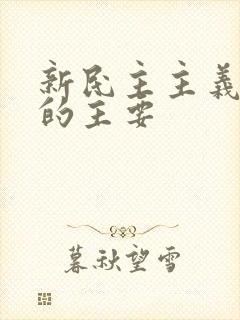 新民主主义
的主要
暮秋望雪